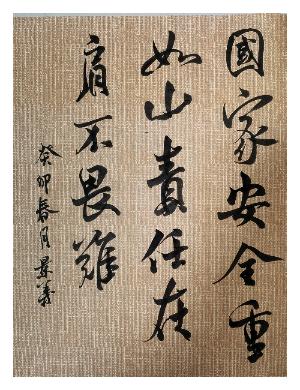 國家安全重
如山責任在
肩不畏難
癸卯春月